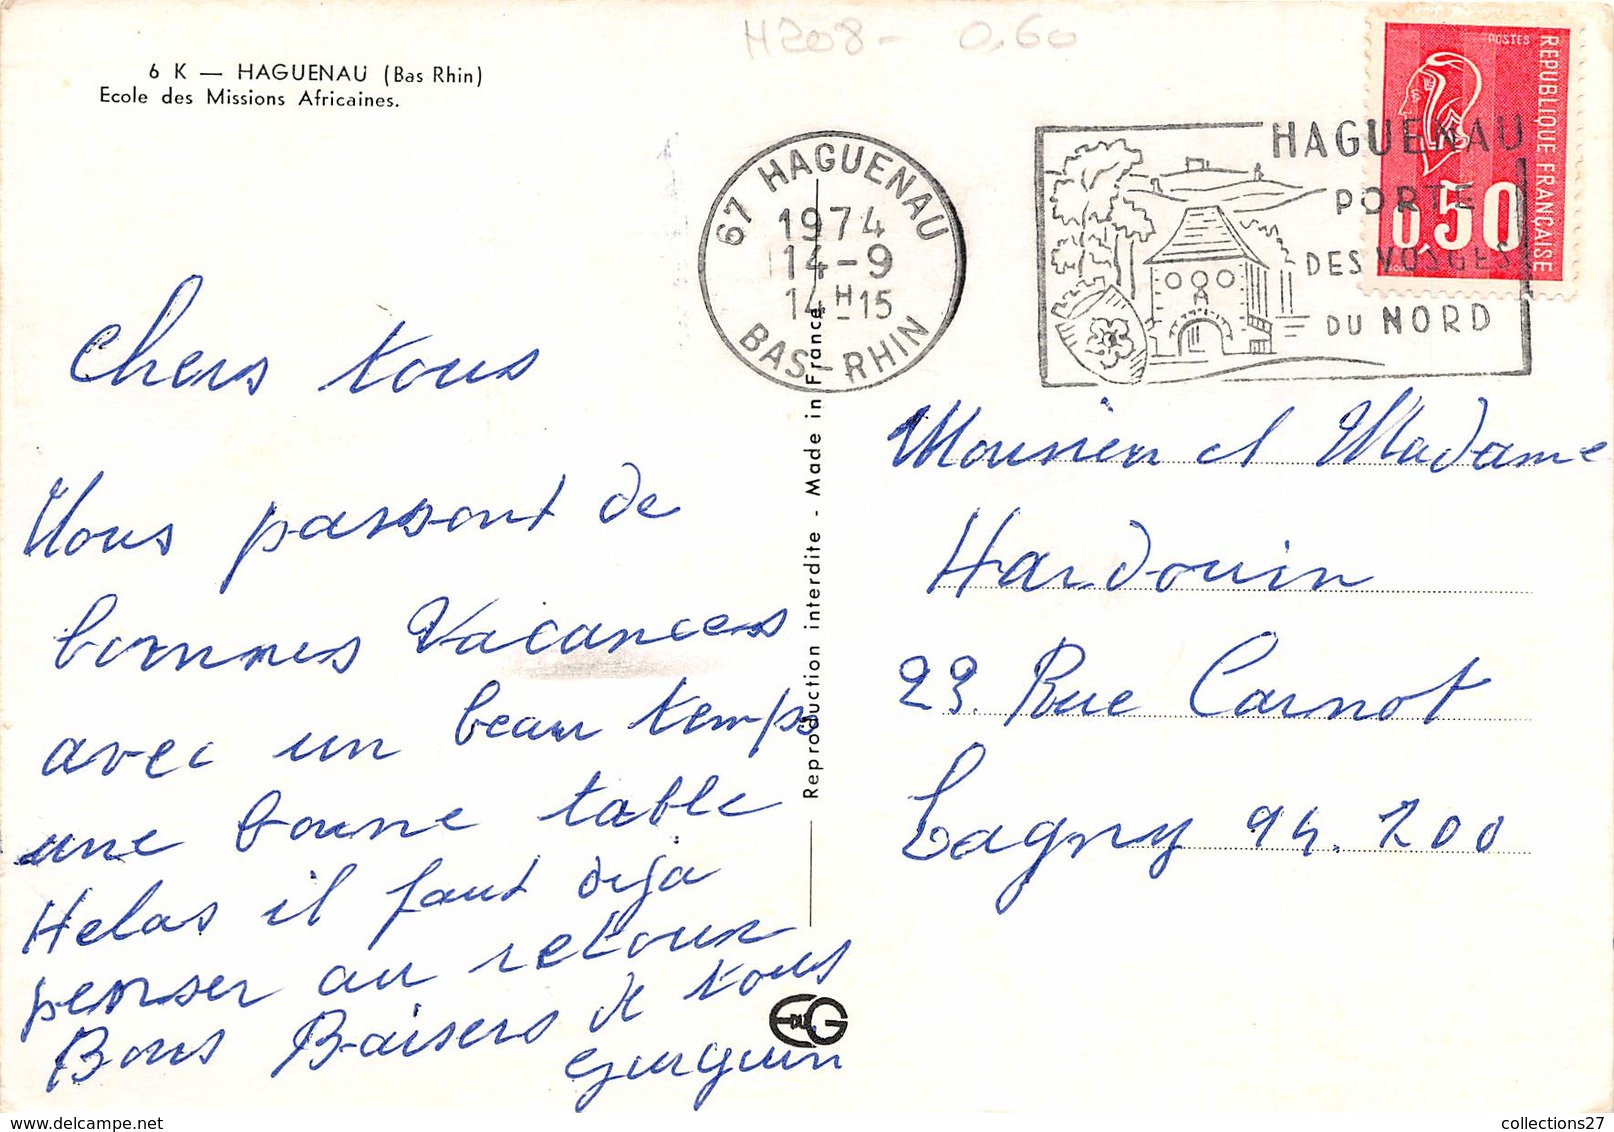 H208- 0,60
6 K — HAGUENAU (Bas Rhin)
Ecole des Missions Africaines.
67 HAGUENAU
1974
14-9
14H15
BAS-RHIN
HAGUENAU
PORTE
DES VOSGES
DU NORD
POSTES
REPUBLIQUE FRANÇAISE
0,50
Chers tous
Nous passont de
bonnes Vacances
avec un beau temps
une bonne table
Helas il faut deja
penser au retour
Bons Baisers de tous
Reproduction interdite - Made in France
Monsieur et Madame
Hardouin
23. Rue Carnot
Lagny 94.200
EG
collections27